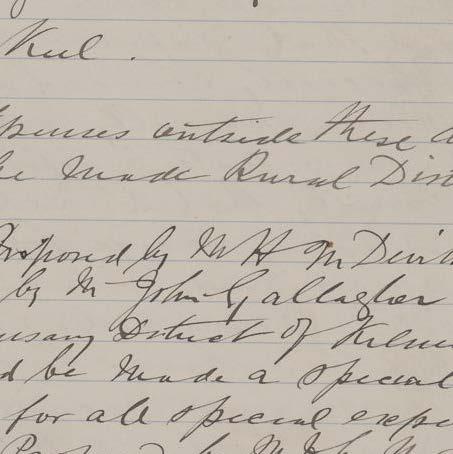 Keel.
xpenses outside these a
be made Rural Dist
Proposed by Mr H McDevit
by Mr John Gallagher
ensary District of Kilm
d be made a special
for all special expe